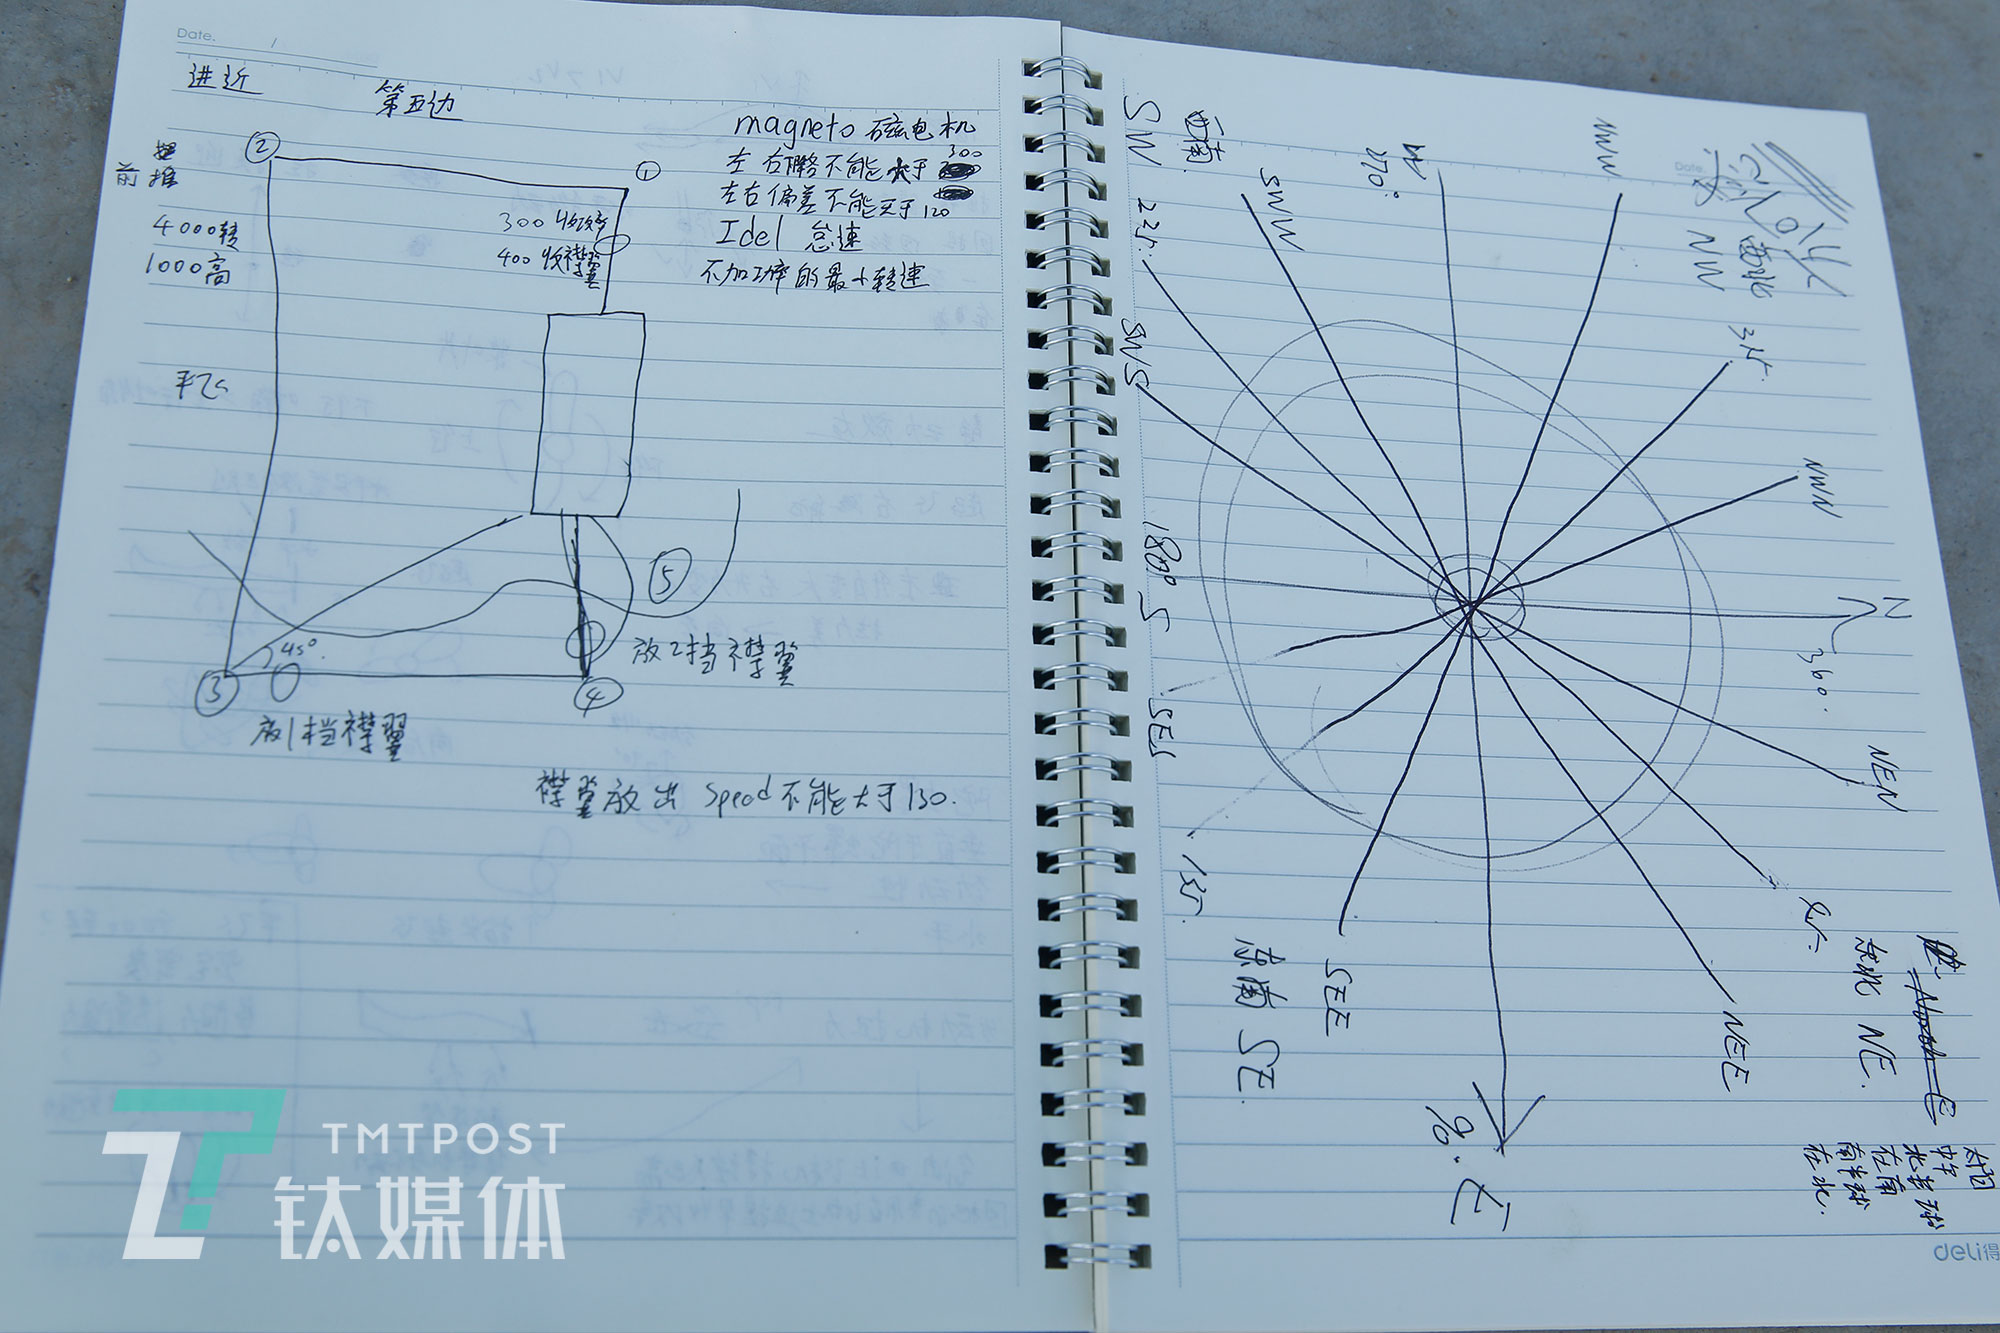 Date.
进近
第五边
②
①
前推
4000转
1000高
平飞
300收
400收襟翼
magneto 磁电机
左右 不能大于 300
左右偏差不能大于120
Idel 怠速
不加功率的最小转速
⑤
45°
③
④
放2挡襟翼
放1挡襟翼
襟翼放出 Speed 不能大于130.
TMTPOST
钛媒体
Date.
西北
NW
315.
NWW
270°
SWW
西南
SW
225
SWS
NWN
N
360°
180° S
NEN
SES
135.
东南 SE.
SEE
NEE
东北 NE.
90° E
太阳
中午
北半球
在南
南半球
在北.
deli得